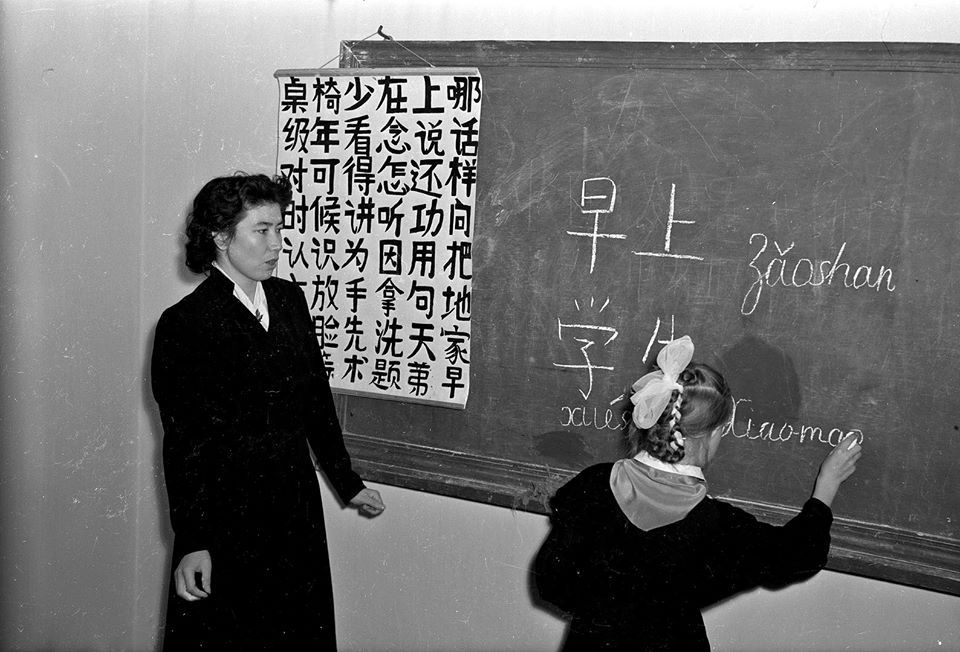 桌椅少在上哪
级年看念说话
对可得怎还样
时候讲听功问
认识为因用把
放手拿句地
脸先洗天家
术题第早
早上 Zǎoshan
学
xués Xiao-mao